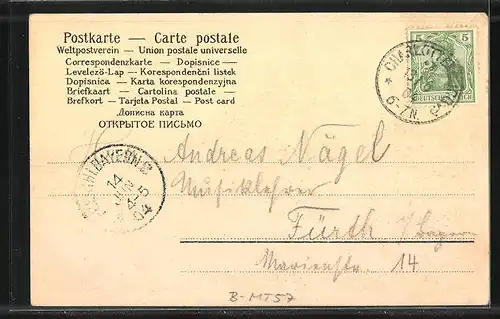 Postkarte — Carte postale
Weltpostverein — Union postale universelle
Correspondenzkarte — Dopisnice —
Levelező-Lap — Korespondenční lístek
Dopisnica — Karta korespondencyjna
Briefkaart — Cartolina postale —
Brefkort — Tarjeta Postal — Post card
Дописна карта
ОТКРЫТОЕ ПИСЬМО
5 5
DEUTSCHES REICH
6-7N.
BAYERN
14
Andreas Nägel
Musiklehrer
Fürth i/Bayern
Marienstr. 14
B-MT57